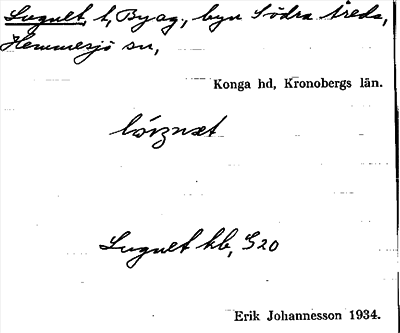 Lugnet, t, Byag, byn Södra Åreda,
Hemmesjö sn,
Konga hd, Kronobergs län.
Lugnet hb, G20
Erik Johannesson 1934.